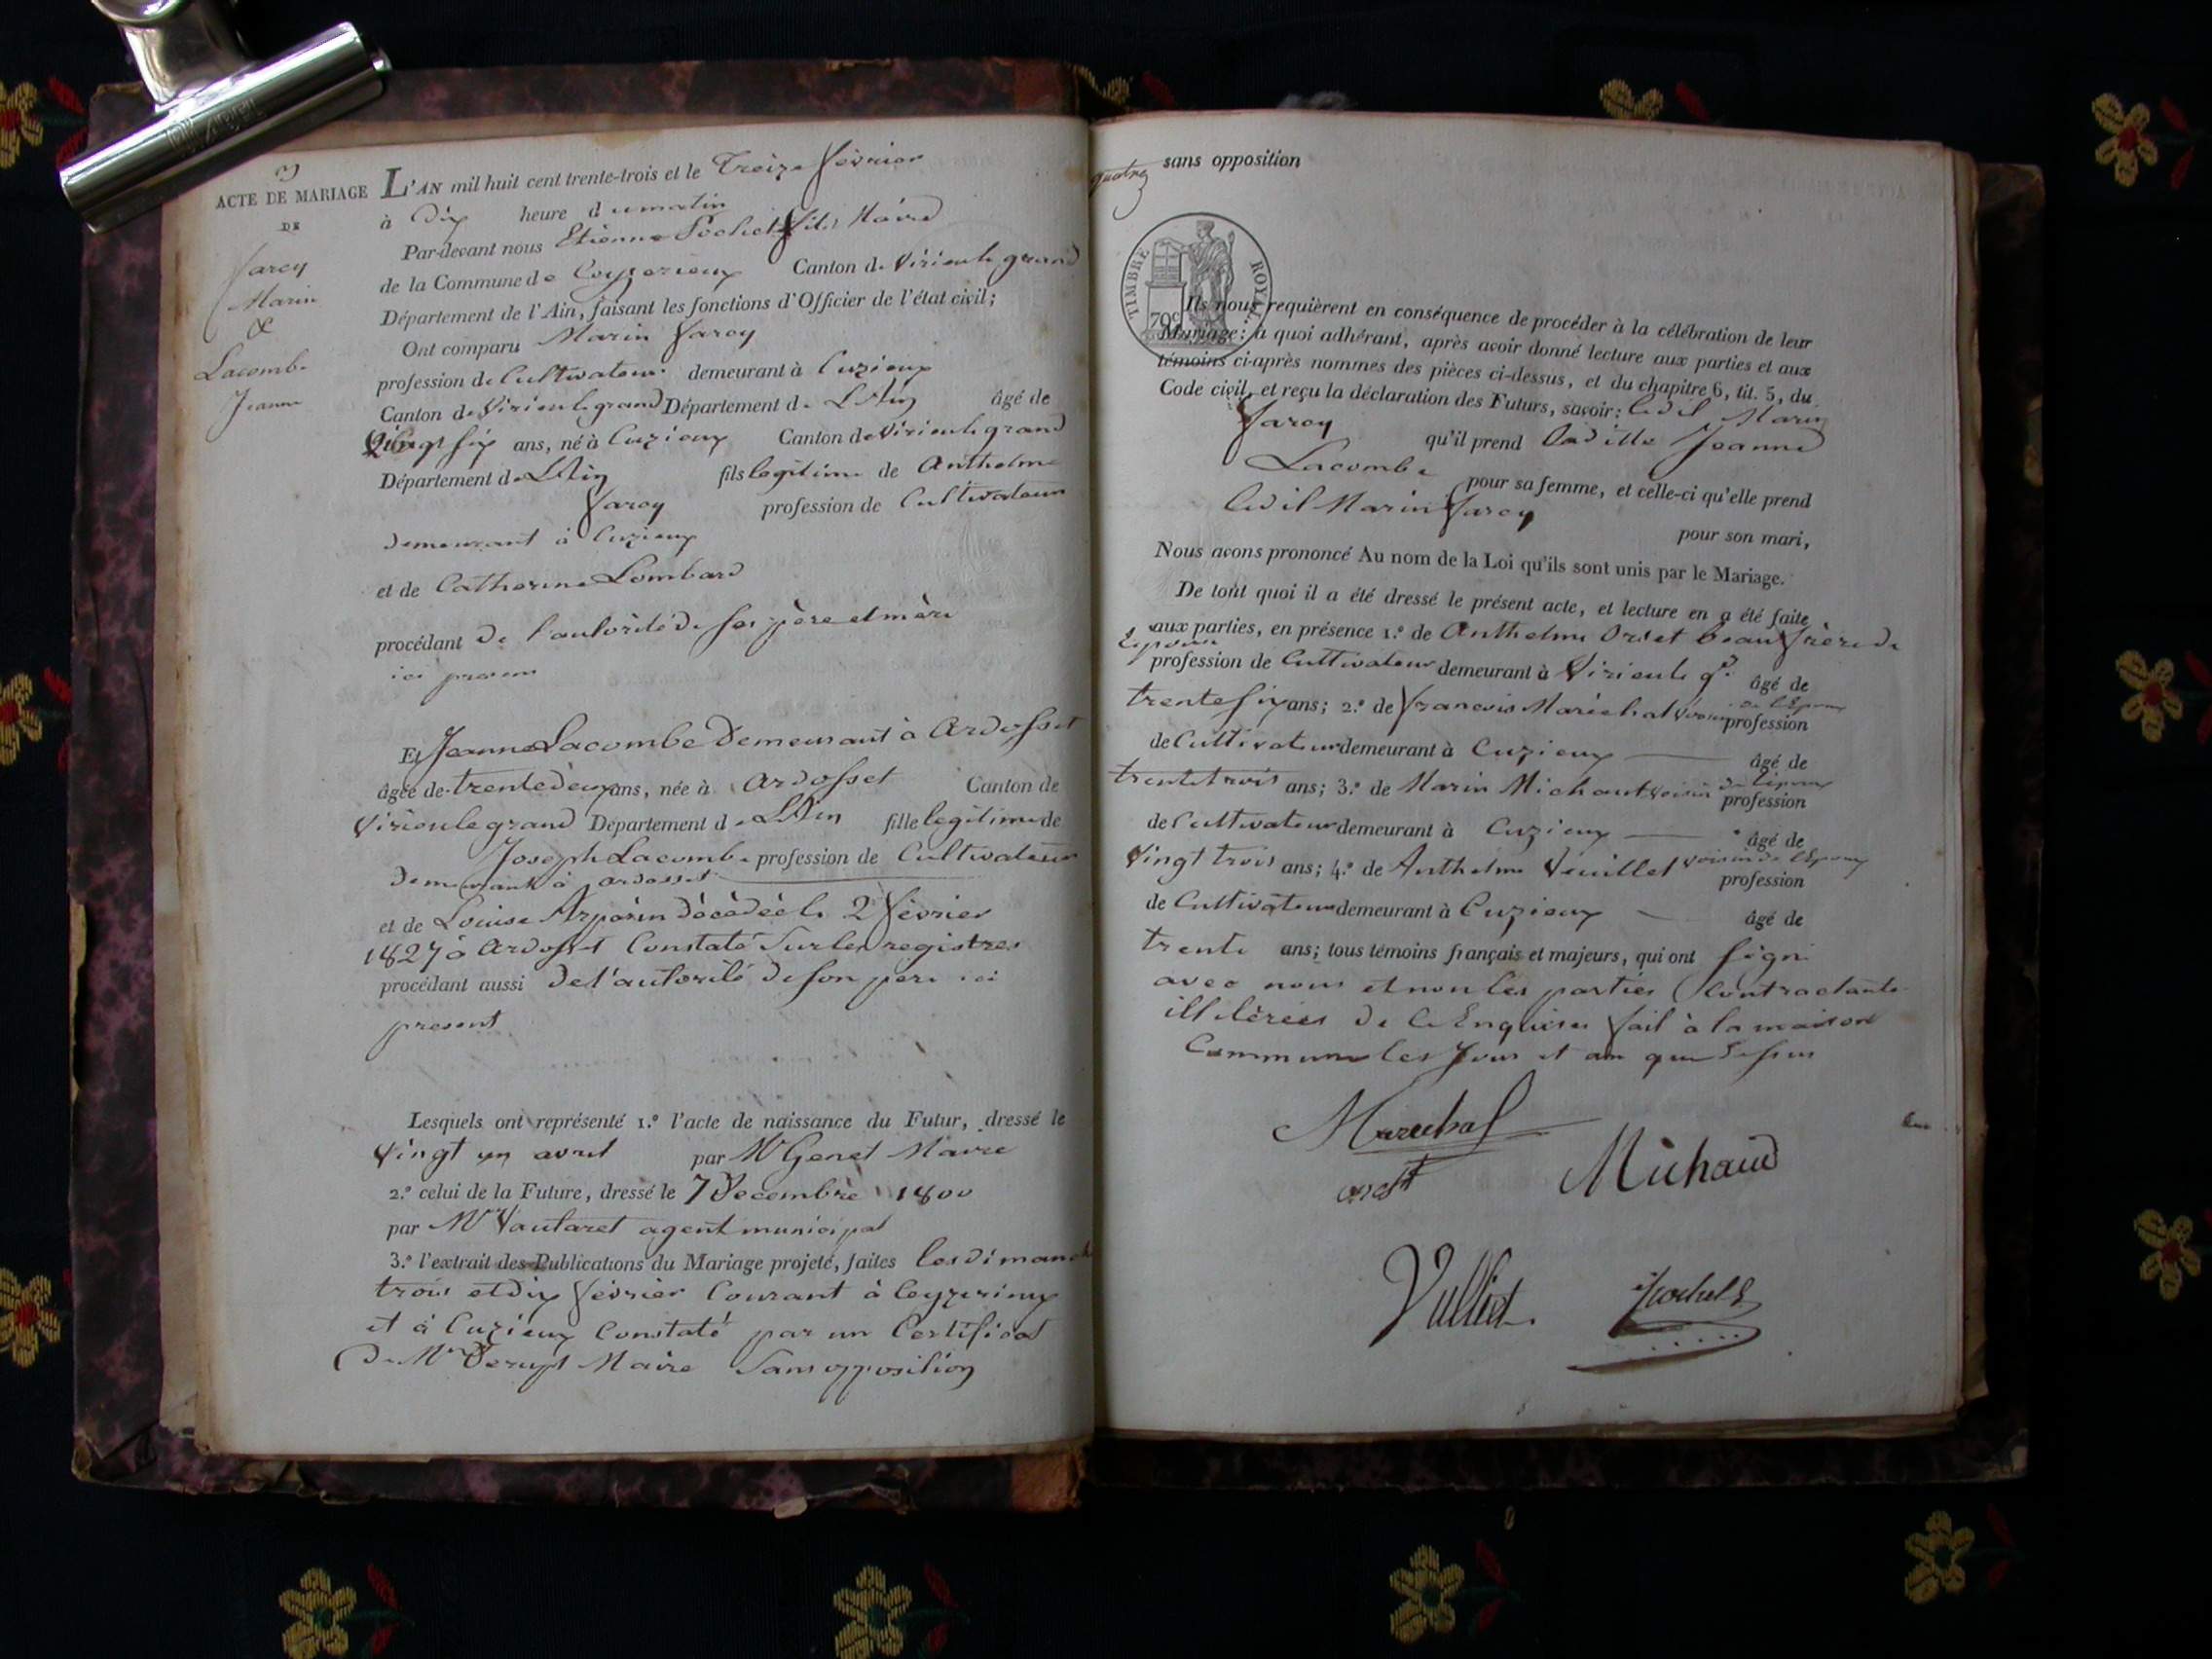 3
ACTE DE MARIAGE
DE
Farcy
Marin
&
Lacombe
Jeanne
L'AN mil huit cent trente-trois et le Treize février
à Dix heure du matin
Par-devant nous Etienne Pochet fils Maire
de la Commune de Ceyzerieux Canton de Virieu le grand
Département de l'Ain, faisant les fonctions d'Officier de l'état civil;
Ont comparu Marin Farcy
profession de Cultivateur demeurant à Cuzieux
Canton de Virieu le grand Département de L'Ain âgé de
Vingt six ans, né à Cuzieux Canton de Virieu le grand
Département de L'Ain fils legitime de Anthelme
Farcy profession de Cultivateur
demeurant à Cuzieux
et de Catherine Lombard
procédant De l'autorité de ses père et mère
ici presens
Et Jeanne Lacombe Demeurant à Ardosset
âgée de trente deux ans, née à Ardosset Canton de
Virieu le grand Département de L'Ain fille legitime de
Joseph Lacombe profession de Cultivateur
demeurant à ardosset
et de Louise Arparin décédée le 2 février
1827 à Ardosset Constaté sur les registres
procédant aussi de l'autorité de son père ici
present
Lesquels ont représenté 1.º l'acte de naissance du Futur, dressé le
Vingt un avril par Mr Genet Maire
2.º celui de la Future, dressé le 7 Decembre 1800
par Mr Vautaret agent municipal
3.º l'extrait des Publications du Mariage projeté, faites les dimanche
trois et dix février Courant à Ceyzerieux
et à Cuzieux Constaté par un Certificat
De Mr Maire Sans opposition
sans opposition
quatre
TIMBRE ROYAL
70c
Ils nous requièrent en conséquence de procéder à la célébration de leur
Mariage: à quoi adhérant, après avoir donné lecture aux parties et aux
témoins ci-après nommes des pièces ci-dessus, et du chapitre 6, tit. 5, du
Code civil, et reçu la déclaration des Futurs, savoir: Ledit Marin
Farcy qu'il prend Laditte Jeanne
Lacombe pour sa femme, et celle-ci qu'elle prend
Ledit Marin Farcy
pour son mari,
Nous avons prononcé Au nom de la Loi qu'ils sont unis par le Mariage.
De tout quoi il a été dressé le présent acte, et lecture en a été faite
aux parties, en présence 1.º de Anthelme Orset beau frère de
L'epoux
profession de Cultivateur demeurant à Virieu le gd. âgé de
trente six ans; 2.º de François Maréchal voisin de l'Epoux profession
de Cultivateur demeurant à Cuzieux âgé de
trente trois ans; 3.º de Marin Michaut voisin de l'epoux profession
de Cultivateur demeurant à Cuzieux âgé de
Vingt trois ans; 4.º de Anthelme Veuillet voisin de l'Epoux profession
de Cultivateur demeurant à Cuzieux âgé de
trente ans; tous témoins français et majeurs, qui ont signé
avec nous et non les parties Contractante
illitérées de ce Enquises fait à la maison
Commune les Jour et an que dessus
Marechal
orset
Michaud
Vulliet
Pochet